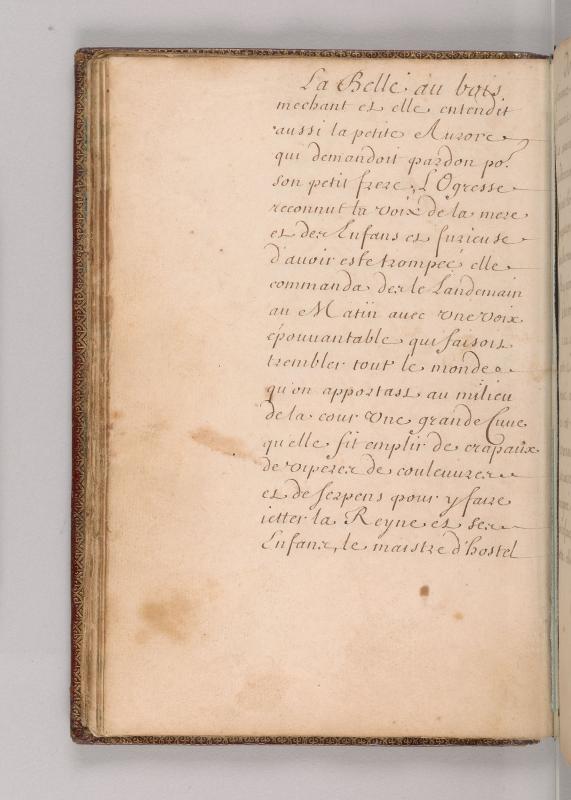 La Belle au bois
mechant et elle entendit
aussi la petite Aurore
qui demandoit pardon po.r
son petit frere, L'Ogresse
reconnut la voix de la mere
et des Enfans et furieuse
d'avoir esté trompeé elle
commanda des le Landemain
au Matin avec une voix
épouuantable qui faisoit
trembler tout le monde
qu'on apportast au milieu
de la cour une grande Cuue
qu'elle fit emplir de crapaux
de viperes de couleuures
et de serpens pour y faire
ietter la Reyne et ses
Enfans, le maistre d'hostel